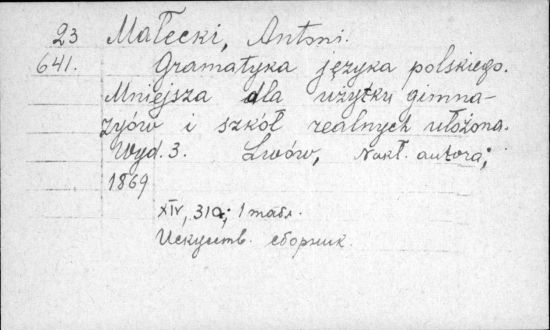 23 Małecki, Antoni.
641. Gramatyka języka polskiego.
Mniejsza dla użytku gimna-
zyów i szkół realnych ułożona.
Wyd. 3. Lwów, Nakł. autora;
1869
XIV, 310; 1 табл.
Искусств. сборник.